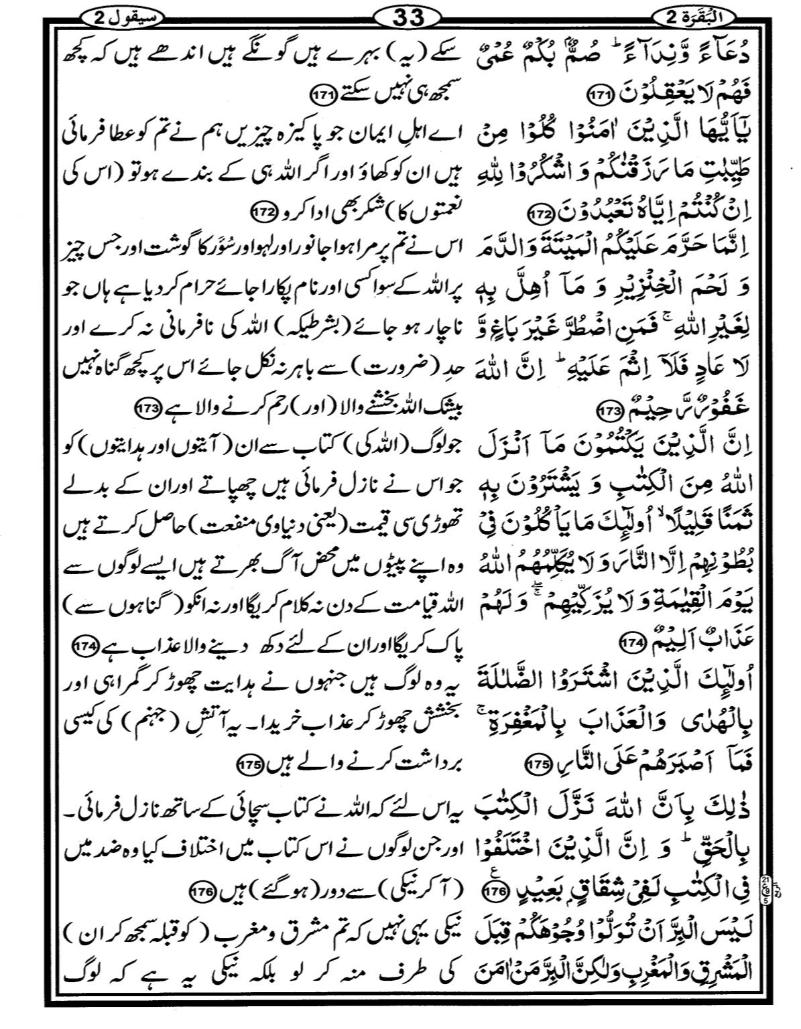 البقرة 2
33
سیقول 2
دُعَآءً وَّنِدَآءً ؕ صُمٌّۢ بُكْمٌ عُمْیٌ
فَهُمْ لَا یَعْقِلُوْنَ 171
یٰۤاَیُّهَا الَّذِیْنَ اٰمَنُوْا كُلُوْا مِنْ
طَیِّبٰتِ مَا رَزَقْنٰكُمْ وَ اشْكُرُوْا لِلّٰهِ
اِنْ كُنْتُمْ اِیَّاهُ تَعْبُدُوْنَ 172
اِنَّمَا حَرَّمَ عَلَیْكُمُ الْمَیْتَةَ وَالدَّمَ
وَ لَحْمَ الْخِنْزِیْرِ وَ مَاۤ اُهِلَّ بِهٖ
لِغَیْرِ اللّٰهِ ۚ فَمَنِ اضْطُرَّ غَیْرَ بَاغٍ وَّ
لَا عَادٍ فَلَاۤ اِثْمَ عَلَیْهِ ؕ اِنَّ اللّٰهَ
غَفُوْرٌ رَّحِیْمٌ 173
اِنَّ الَّذِیْنَ یَكْتُمُوْنَ مَاۤ اَنْزَلَ
اللّٰهُ مِنَ الْكِتٰبِ وَ یَشْتَرُوْنَ بِهٖ
ثَمَنًا قَلِیْلًا ۙ اُولٰٓىِٕكَ مَا یَاْكُلُوْنَ فِیْ
بُطُوْنِهِمْ اِلَّا النَّارَ وَ لَا یُكَلِّمُهُمُ اللّٰهُ
یَوْمَ الْقِیٰمَةِ وَ لَا یُزَكِّیْهِمْ ۖۚ وَ لَهُمْ
عَذَابٌ اَلِیْمٌ 174
اُولٰٓىِٕكَ الَّذِیْنَ اشْتَرَوُا الضَّلٰلَةَ
بِالْهُدٰی وَالْعَذَابَ بِالْمَغْفِرَةِ ۚ
فَمَاۤ اَصْبَرَهُمْ عَلَی النَّارِ 175
ذٰلِكَ بِاَنَّ اللّٰهَ نَزَّلَ الْكِتٰبَ
بِالْحَقِّ ؕ وَ اِنَّ الَّذِیْنَ اخْتَلَفُوْا
فِی الْكِتٰبِ لَفِیْ شِقَاقٍۭ بَعِیْدٍ 176 ع
لَیْسَ الْبِرَّ اَنْ تُوَلُّوْا وُجُوْهَكُمْ قِبَلَ
الْمَشْرِقِ وَالْمَغْرِبِ وَلٰكِنَّ الْبِرَّ مَنْ اٰمَنَ
سکے (یہ) بہرے ہیں گونگے ہیں اندھے ہیں کہ کچھ
سمجھ ہی نہیں سکتے 171
اے اہلِ ایمان جو پاکیزہ چیزیں ہم نے تم کو عطا فرمائی
ہیں ان کو کھاؤ اور اگر اللہ ہی کے بندے ہو تو (اس کی
نعمتوں کا) شکر بھی ادا کرو 172
اس نے تم پر مرا ہوا جانور اور لہو اور سُؤر کا گوشت اور جس چیز
پر اللہ کے سوا کسی اور نام پکارا جائے حرام کر دیا ہے ہاں جو
ناچار ہو جائے (بشرطیکہ) اللہ کی نافرمانی نہ کرے اور
حدِ (ضرورت) سے باہر نہ نکل جائے اس پر کچھ گناہ نہیں
بیشک اللہ بخشنے والا (اور) رحم کرنے والا ہے 173
جو لوگ (اللہ کی) کتاب سے ان (آیتوں اور ہدایتوں) کو
جو اس نے نازل فرمائی ہیں چھپاتے اور ان کے بدلے
تھوڑی سی قیمت (یعنی دنیاوی منفعت) حاصل کرتے ہیں
وہ اپنے پیٹوں میں محض آگ بھرتے ہیں ایسے لوگوں سے
اللہ قیامت کے دن نہ کلام کریگا اور نہ انکو (گناہوں سے)
پاک کریگا اور ان کے لئے دکھ دینے والا عذاب ہے 174
یہ وہ لوگ ہیں جنہوں نے ہدایت چھوڑ کر گمراہی اور
بخشش چھوڑ کر عذاب خریدا ۔ یہ آتشِ (جہنم) کی کیسی
برداشت کرنے والے ہیں 175
یہ اس لئے کہ اللہ نے کتاب سچائی کے ساتھ نازل فرمائی ۔
اور جن لوگوں نے اس کتاب میں اختلاف کیا وہ ضد میں
(آ کر نیکی) سے دور (ہو گئے) ہیں 176
نیکی یہی نہیں کہ تم مشرق و مغرب (کو قبلہ سمجھ کر ان)
کی طرف منہ کر لو بلکہ نیکی یہ ہے کہ لوگ